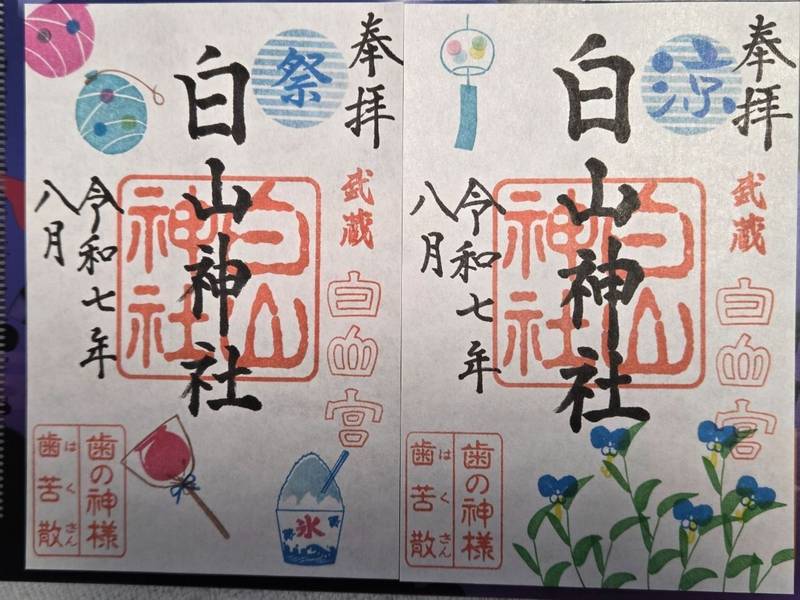 奉拝
祭
白山神社
武蔵
白山宮
白山
神社
令和七年
八月
歯の神様
歯苦散
はくさん
氷
奉拝
涼
白山神社
武蔵
白山宮
白山
神社
令和七年
八月
歯の神様
歯苦散
はくさん